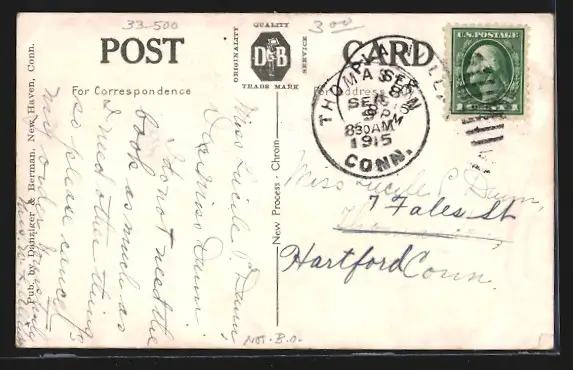 33-500
3 00
POST CARD
QUALITY
ORIGINALITY
D&B
SERVICE
TRADE MARK
For Correspondence
For address
U.S. POSTAGE
1 CENT 1
THOMASTON
SEP
8
830AM
1915
CONN.
Pub. by Danziger & Berman, New Haven, Conn.
New Process - Chrom
Miss Lucile C. Dunn,
Dear Miss Dunn:
Do not need the
book as much as
I need other things
so please cancel
my order
Miss Lucyle C. Dunn,
7 Fales St
Hartford Conn.
NOT. B.O.